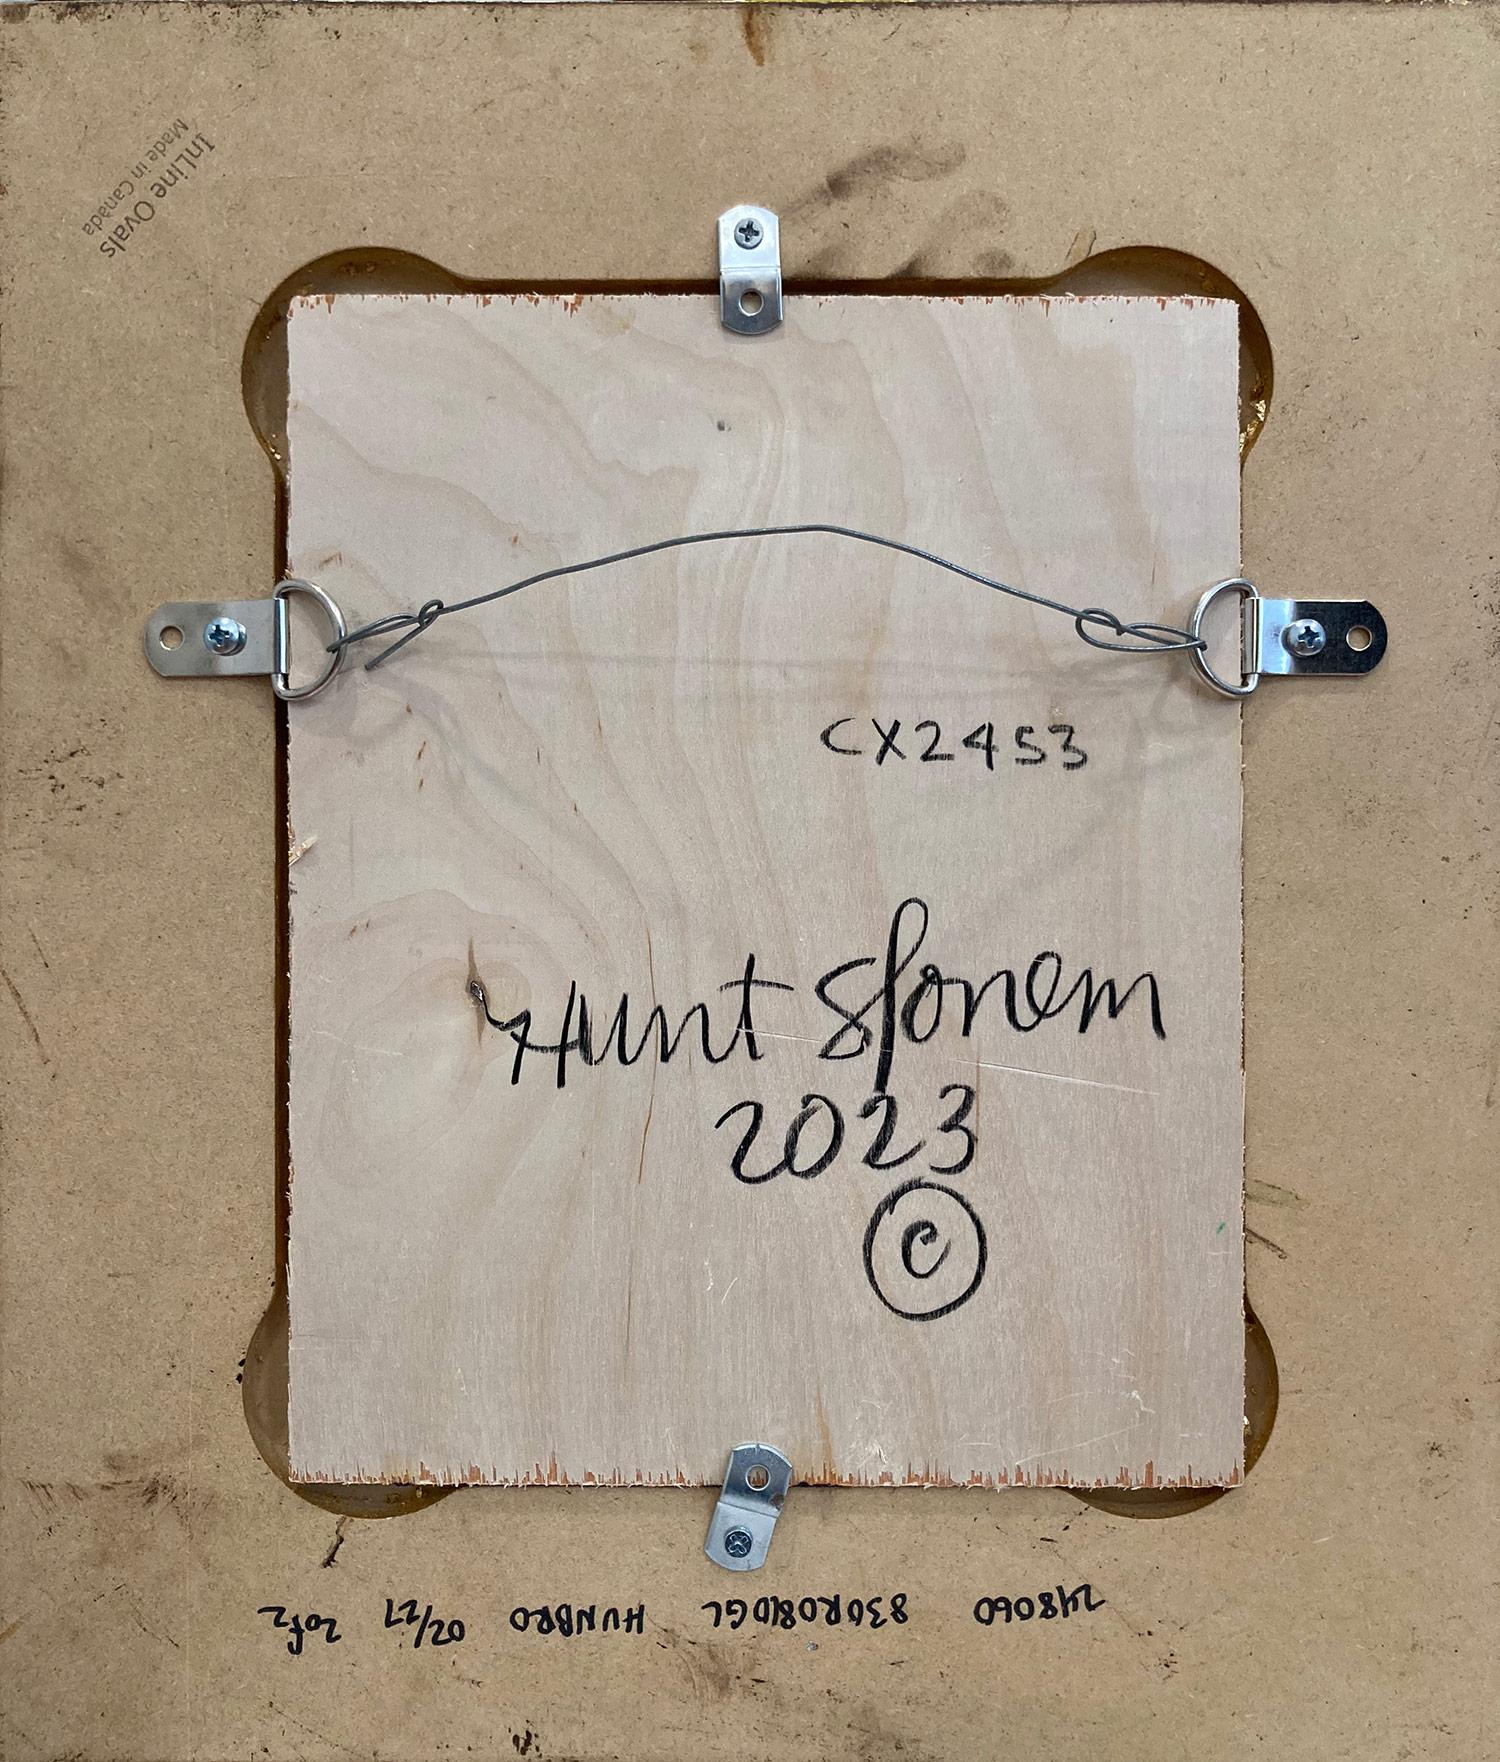 InLine Ovals
Made in Canada
CX2453
Hunt Slonem
2023
©
248060 830R0810GL HUNBRO 02/27 2of2